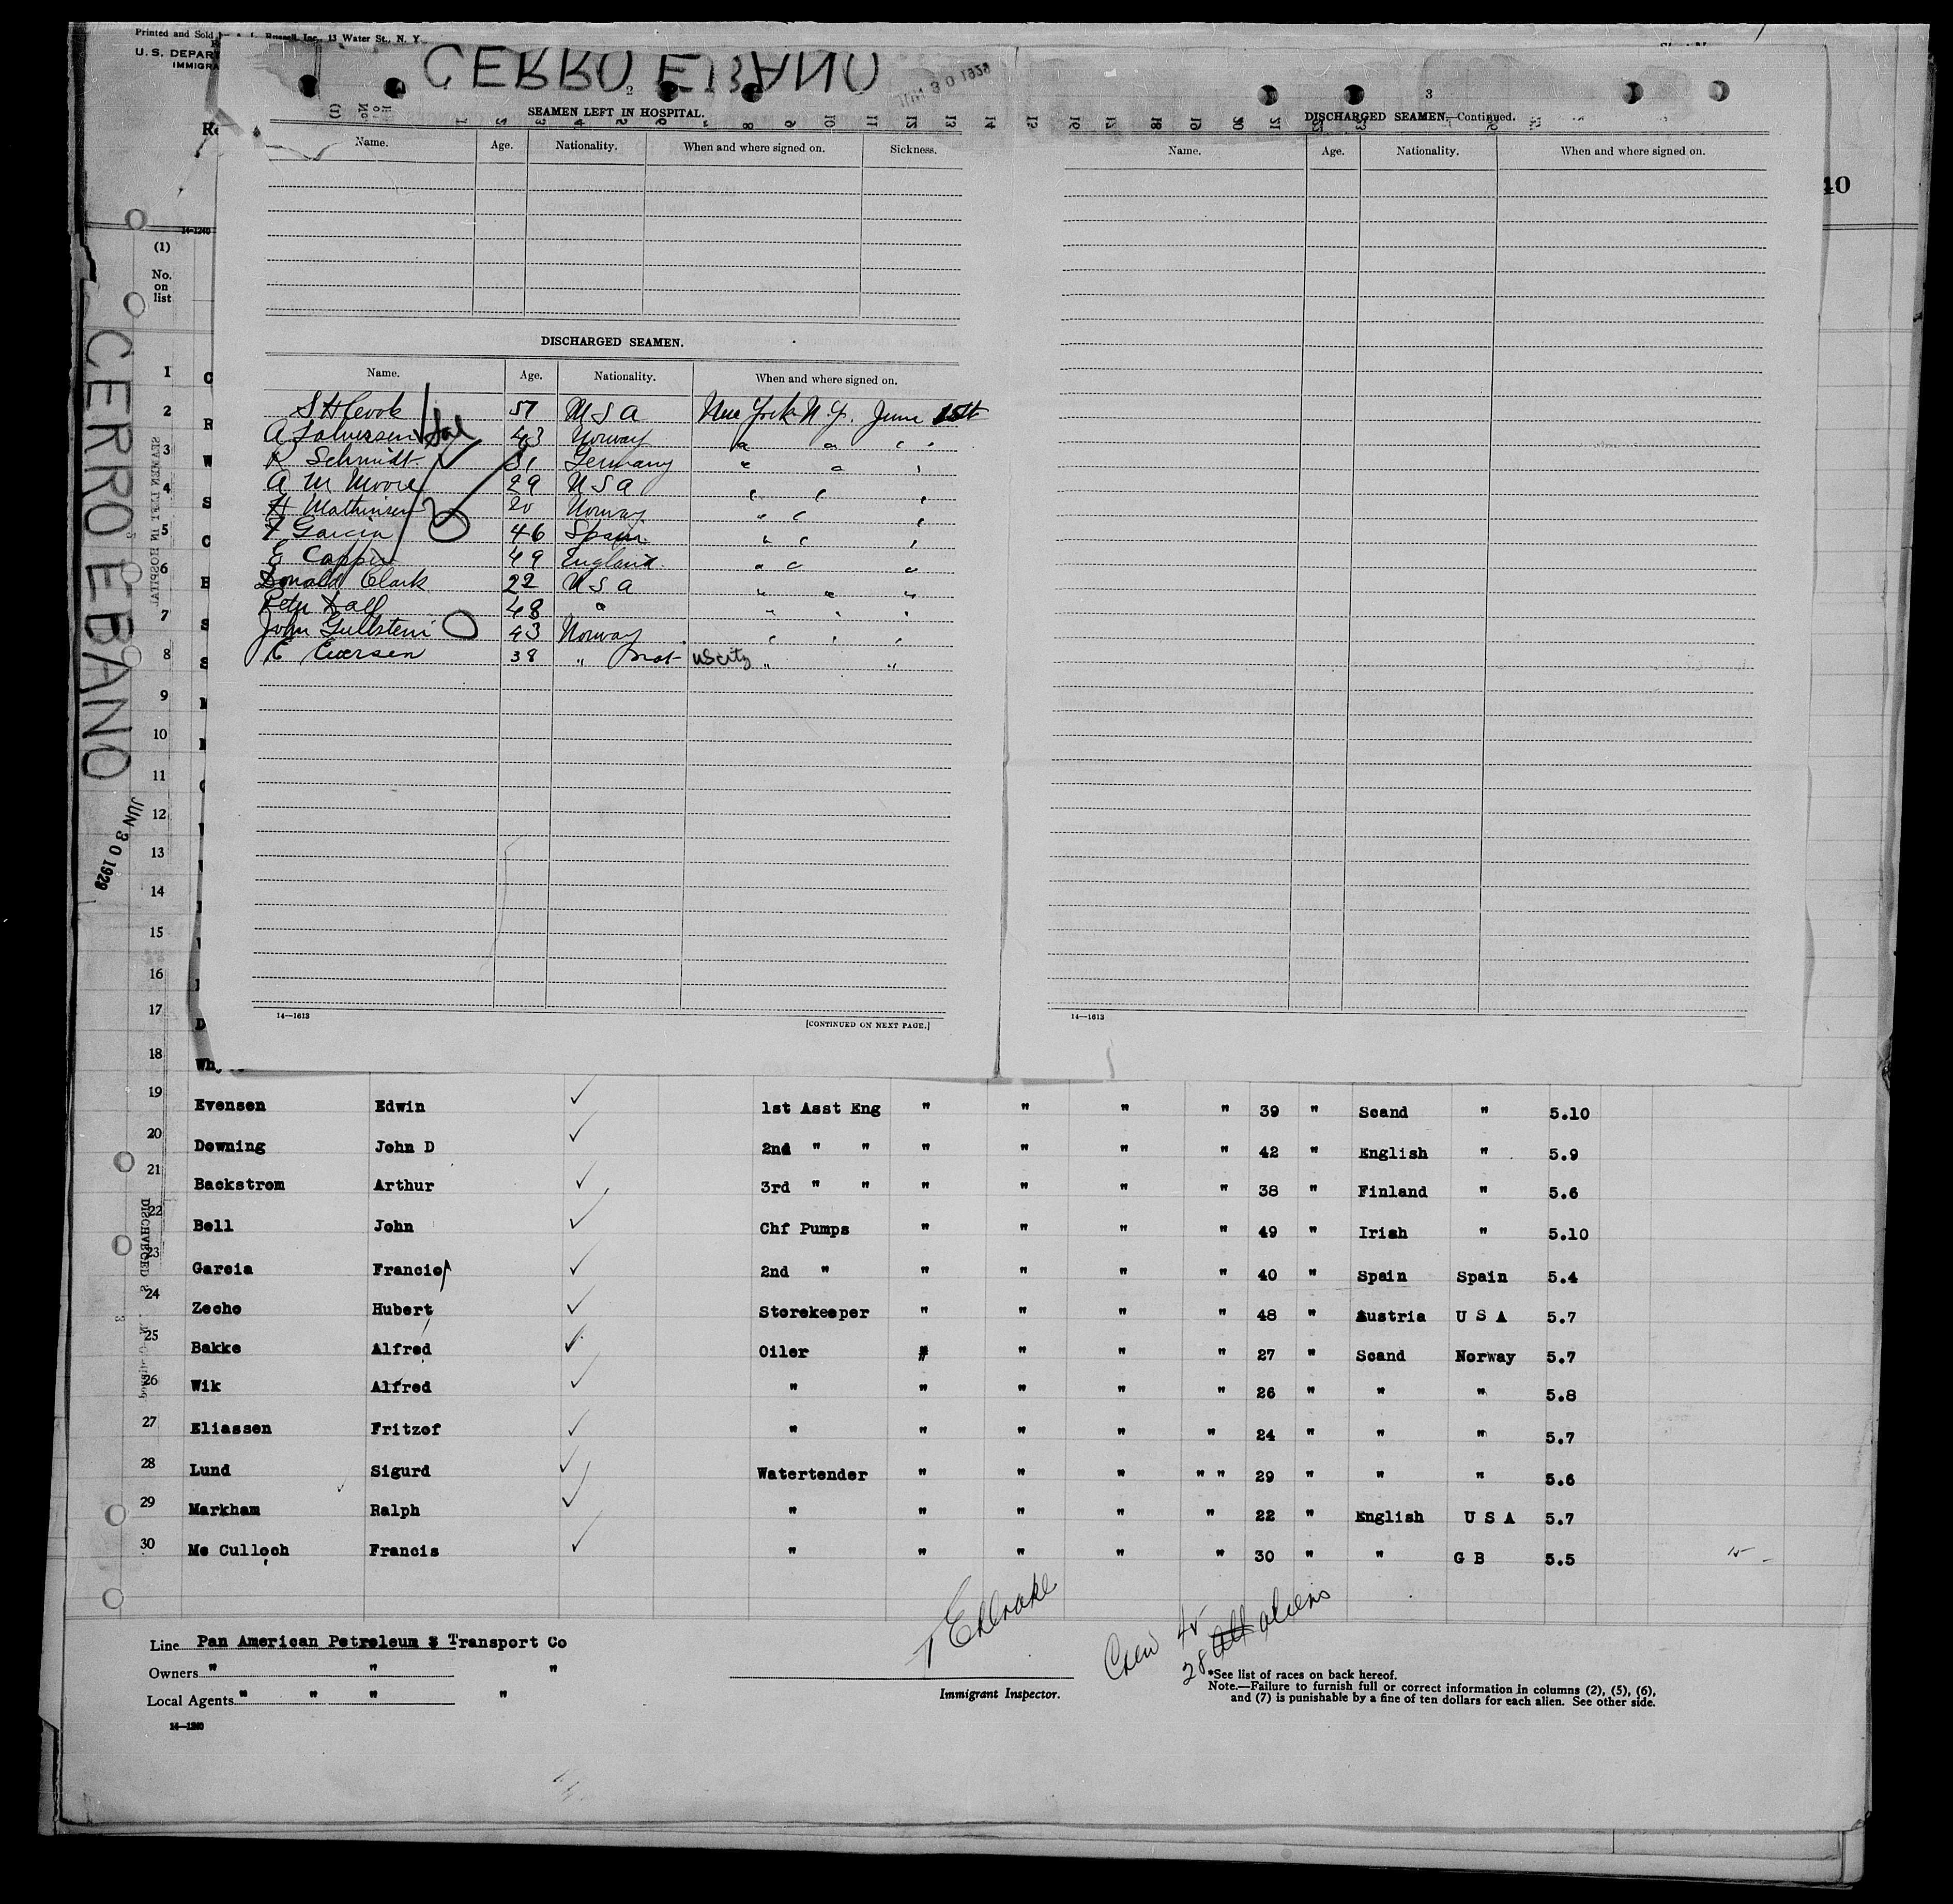 Printed and Sold
Inc., 13 Water St., N. Y.
U. S. DEPAR
IMMIGRA
CERRO EBANO
JUN 3 0 1929
2
SEAMEN LEFT IN HOSPITAL.
Name. Age. Nationality. When and where signed on. Sickness.
DISCHARGED SEAMEN.
Name. Age. Nationality. When and where signed on.
S H Cook 57 U S A New York N.Y. June 15th
A Salversen 43 Norway " " "
R Schmidt 31 Germany " " "
A M Moore 29 U S A " " "
H Mathinsen 20 Norway " " "
F Garcia 46 Spain " " "
E Capper 49 England " " "
Donald Clark 22 U S A " " "
48 " " " "
John Gullstein 43 Norway " " "
E Evensen 38 " nat US city " "
14—1613
[CONTINUED ON NEXT PAGE.]
3
DISCHARGED SEAMEN.—Continued.
Name. Age. Nationality. When and where signed on.
14—1613
40
14-1240
(1)
No.
on
list
CERRO EBANO
JUN 3 0 1929
1 C
2 R
3 W
4 S
5 C
6 B
7 S
8 S
9
10
11
12
13
14
15
16
17 D
18 Wh
19 Evensen Edwin 1st Asst Eng " " " " 39 " Scand " 5.10
20 Downing John D 2nd " " " " " " 42 " English " 5.9
21 Backstrom Arthur 3rd " " " " " " 38 " Finland " 5.6
22 Bell John Chf Pumps " " " " 49 " Irish " 5.10
23 Garcia Francis 2nd " " " " " 40 " Spain Spain 5.4
24 Zecho Hubert Storekeeper " " " " 48 " Austria U S A 5.7
25 Bakke Alfred Oiler # " " " 27 " Scand Norway 5.7
26 Wik Alfred " " " " " 26 " " " 5.8
27 Eliassen Fritzof " " " " " 24 " " " 5.7
28 Lund Sigurd Watertender " " " " " 29 " " " 5.6
29 Markham Ralph " " " " " 22 " English U S A 5.7
30 Mc Culloch Francis " " " " " 30 " " G B 5.5
Crew 45
28 aliens
Line Pan American Petroleum & Transport Co
Owners " " "
Local Agents " " " "
14—1240
Immigrant Inspector.
*See list of races on back hereof.
Note.—Failure to furnish full or correct information in columns (2), (5), (6),
and (7) is punishable by a fine of ten dollars for each alien. See other side.